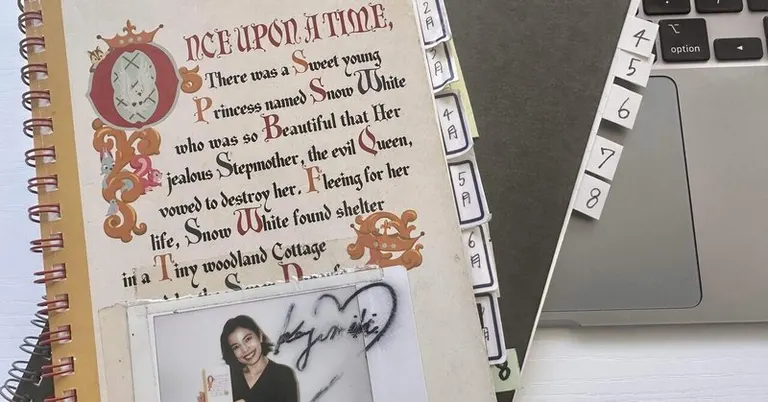 ONCE UPON A TIME,
There was a Sweet young
Princess named Snow White
who was so Beautiful that Her
jealous Stepmother, the evil Queen,
vowed to destroy her. Fleeing for her
life, Snow White found shelter
in a Tiny woodland Cottage
2月
3月
4月
5月
6月
7月
8
4
5
6
7
8
option